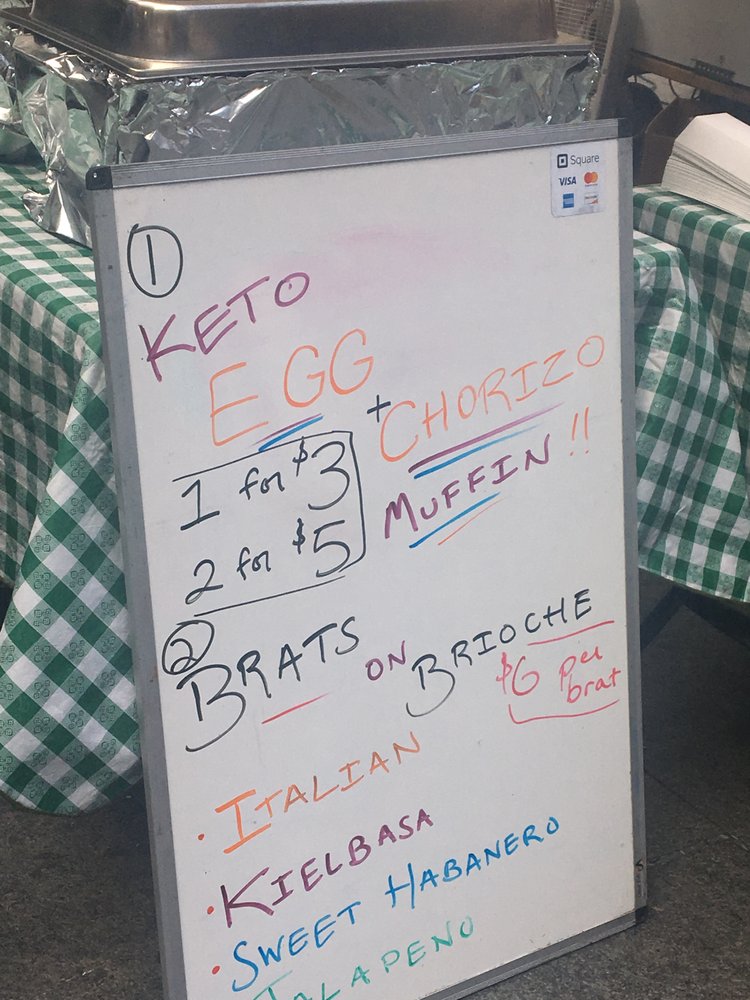 Square
VISA
1
KETO
EGG
+ CHORIZO
MUFFIN!!
1 for $3
2 for $5
2
BRATS ON BRIOCHE
$6 per
brat
• ITALIAN
• KIELBASA
• SWEET HABANERO
JALAPENO